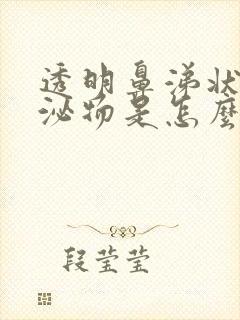 透明鼻涕状
泌物是怎麼
段莹莹